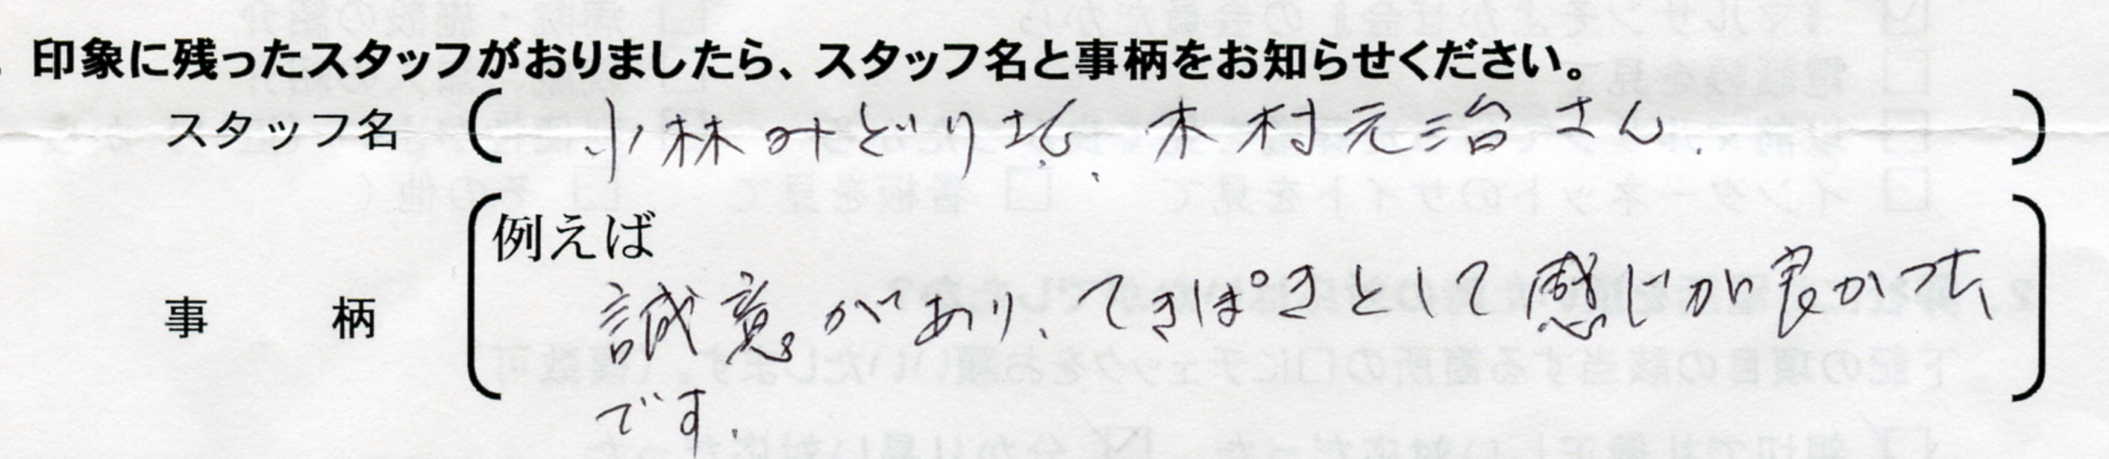 印象に残ったスタッフがおりましたら、スタッフ名と事柄をお知らせください。
スタッフ名 ( 小林みどり様、木村元治さん. )
事 柄 ( 例えば
誠意があり、てきぱきとして感じが良かった
です. )